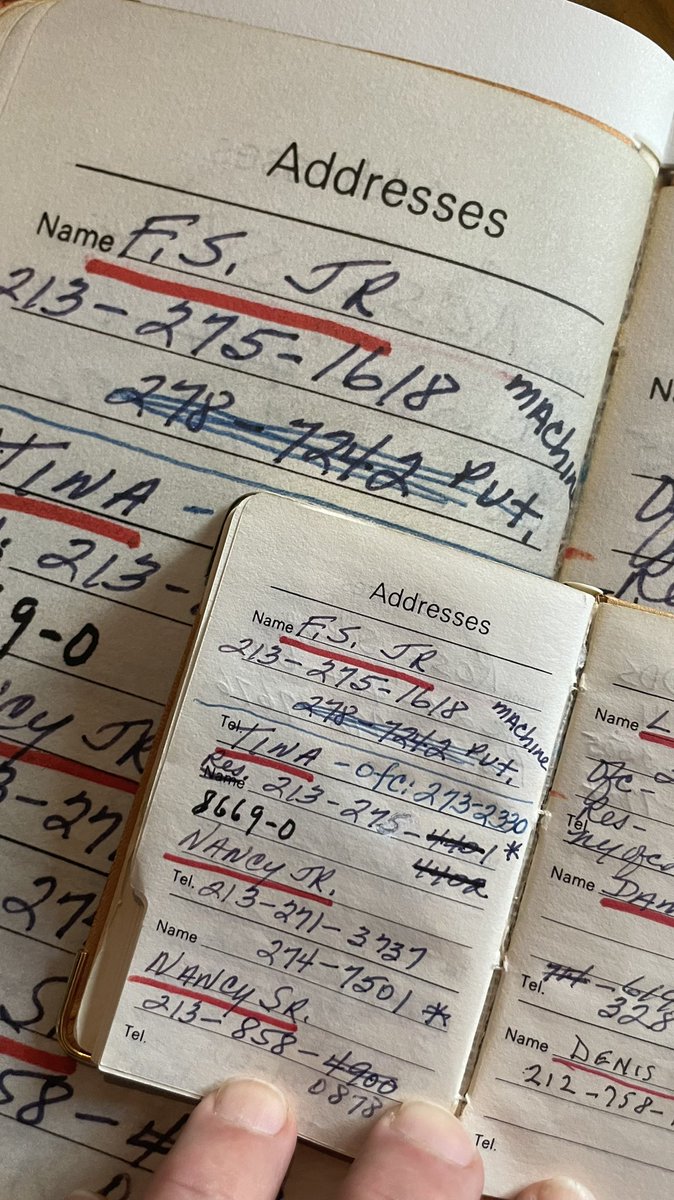 Addresses
Name F.S. JR
213-275-1618 MACHINE
278-7242 PVT.
TINA -
213-
69-0
Addresses
Name F.S. JR
213-275-1618 MACHINE
278-7242 PVT.
Tel. TINA - OFC: 273-2330
Name Res. 213-275-4401 *
8669-0 4402
NANCY JR.
Tel. 213-271-3737
Name 274-7501 *
NANCY SR.
213-858-4900
Tel. 0878
Name L
OFC-
Res-
Tel. NY OFC
Name DAN
Tel.
328
Name DENIS
212-758-
Tel.